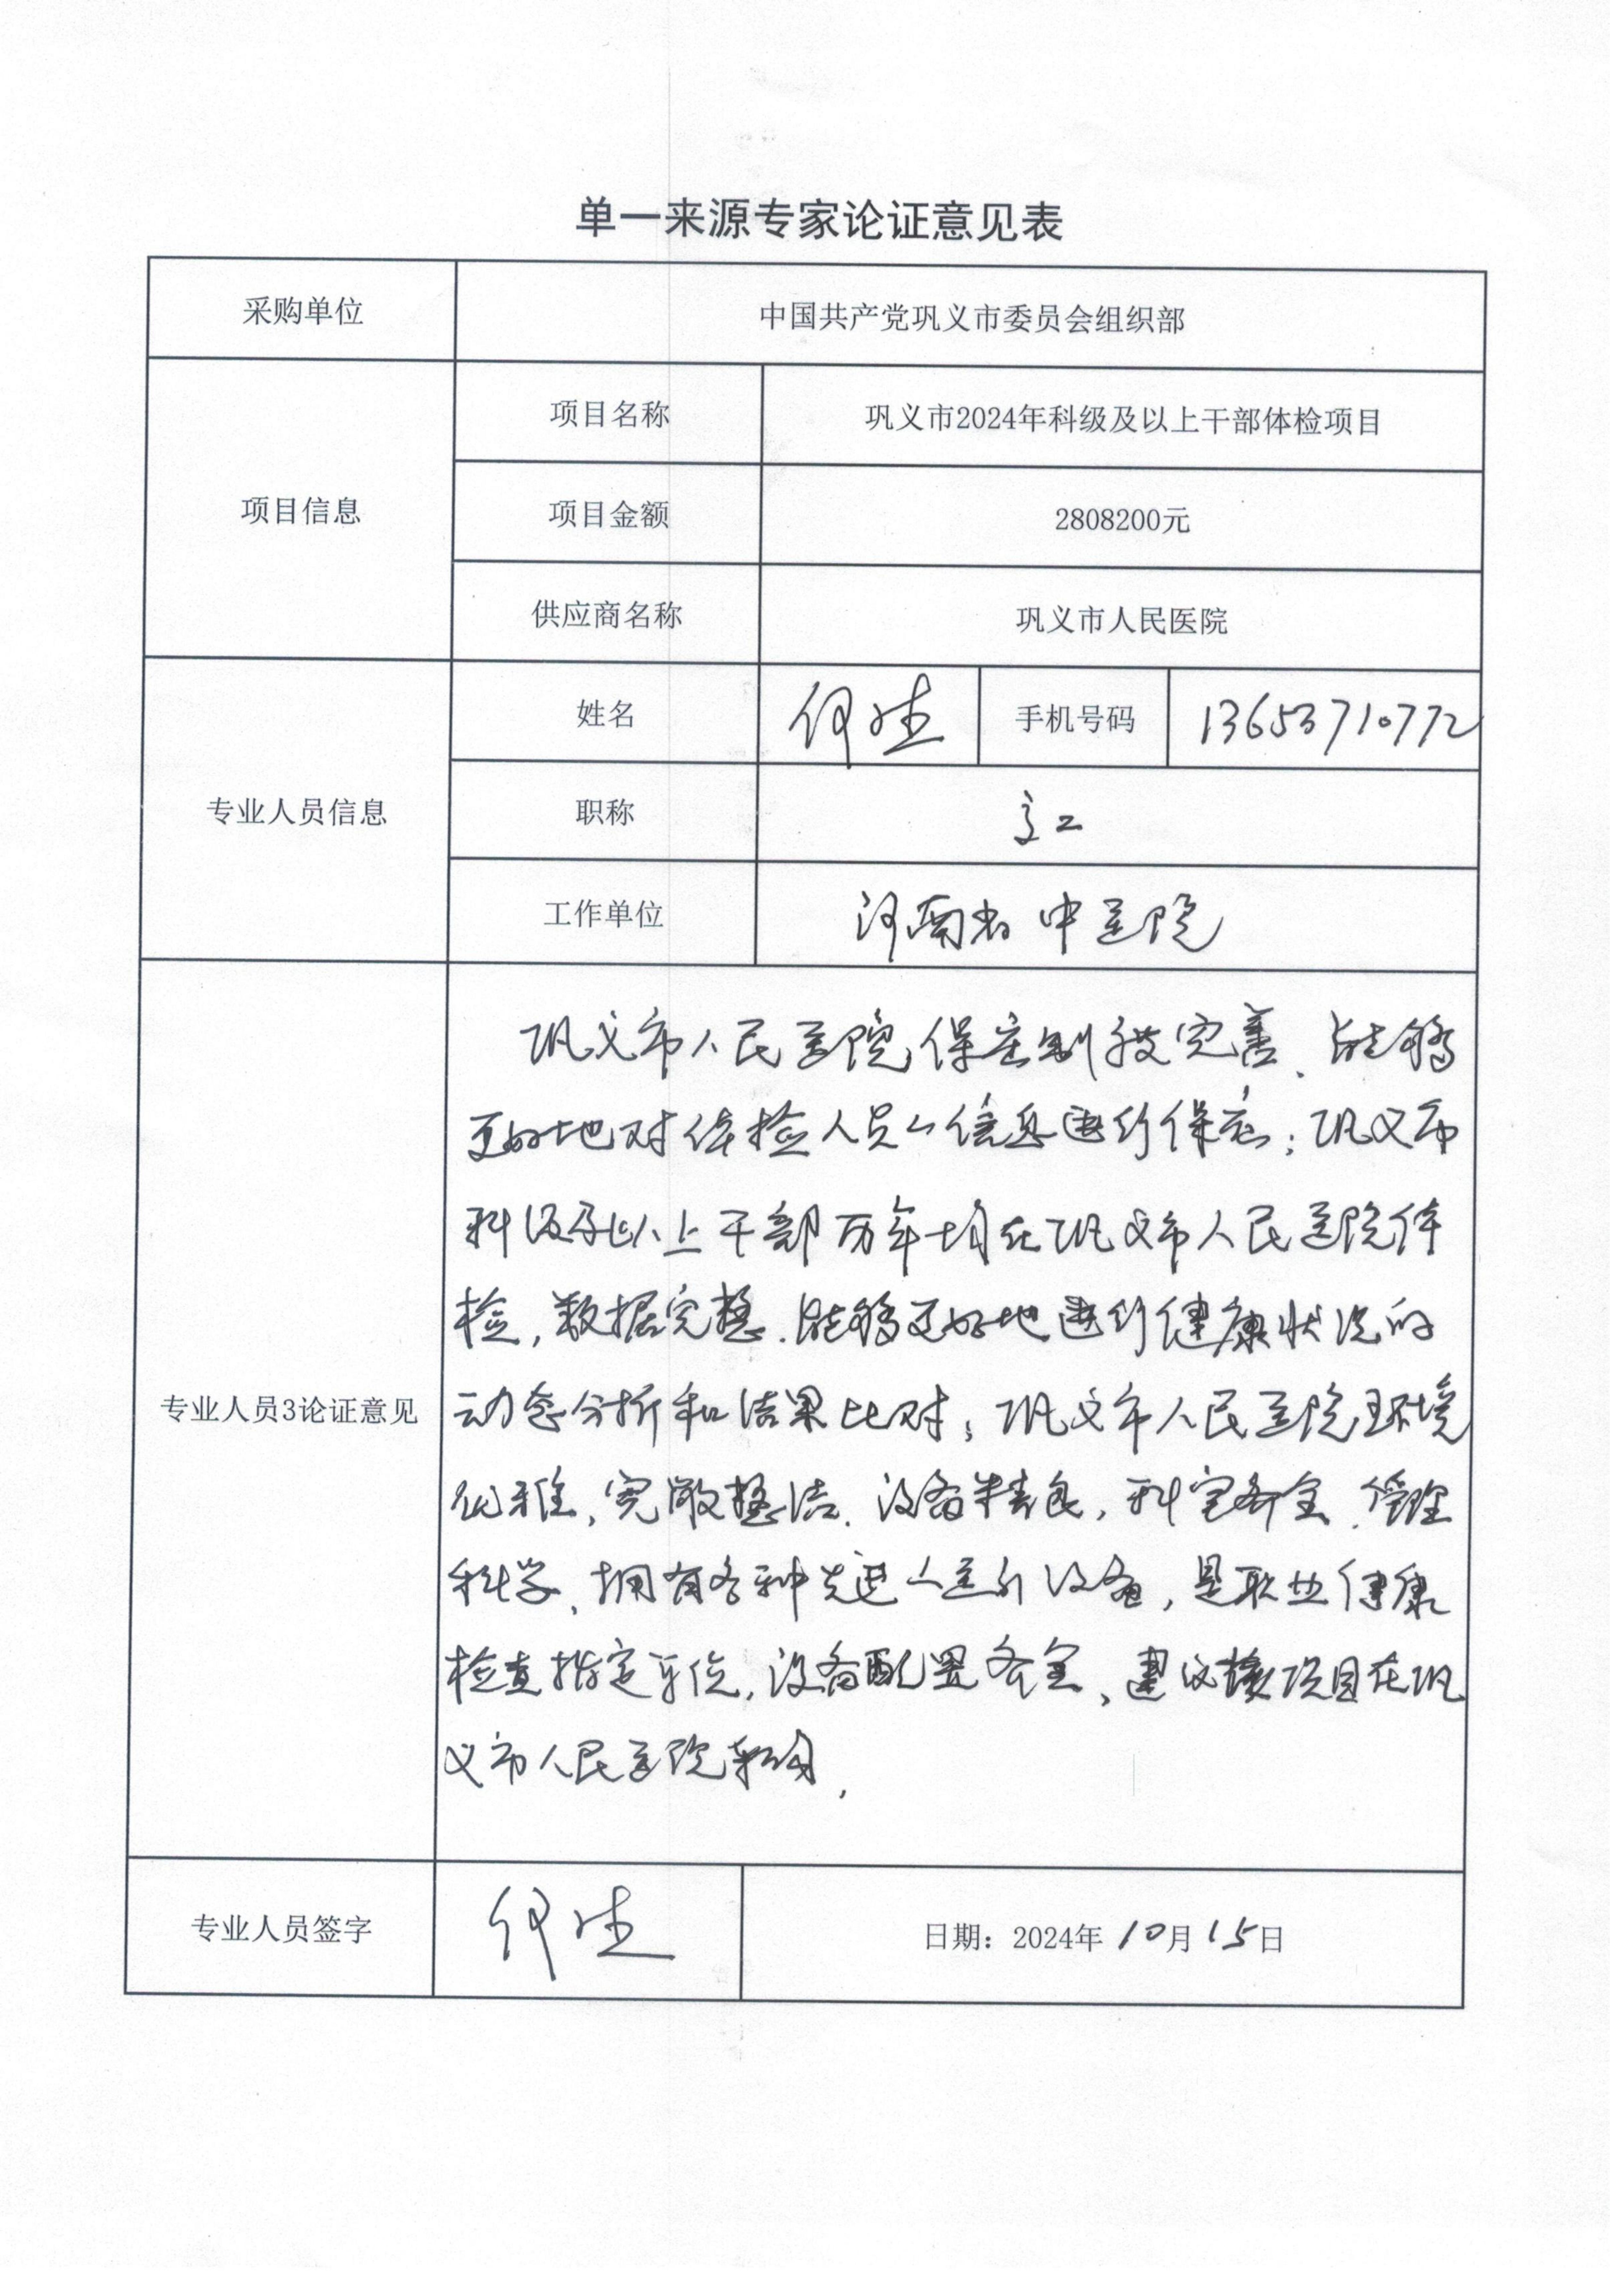 单一来源专家论证意见表
采购单位
中国共产党巩义市委员会组织部
项目信息
项目名称
巩义市2024年科级及以上干部体检项目
项目金额
2808200元
供应商名称
巩义市人民医院
专业人员信息
姓名
手机号码
13653710772
职称
高工
工作单位
河南省中医院
专业人员3论证意见
巩义市人民医院保密制度完善、能够
更好地对体检人员的信息进行保密；巩义市
科级及以上干部历年均在巩义市人民医院体
检，数据完整、能够更好地进行健康状况的
动态分析和结果比对；巩义市人民医院环境
优雅，宽敞整洁、设备精良，科室齐全、管理
科学、拥有各种先进的医疗设备，是职业健康
检查指定单位，设备配置齐全、建议该项目在巩
义市人民医院采购.
专业人员签字
日期：2024年10月15日